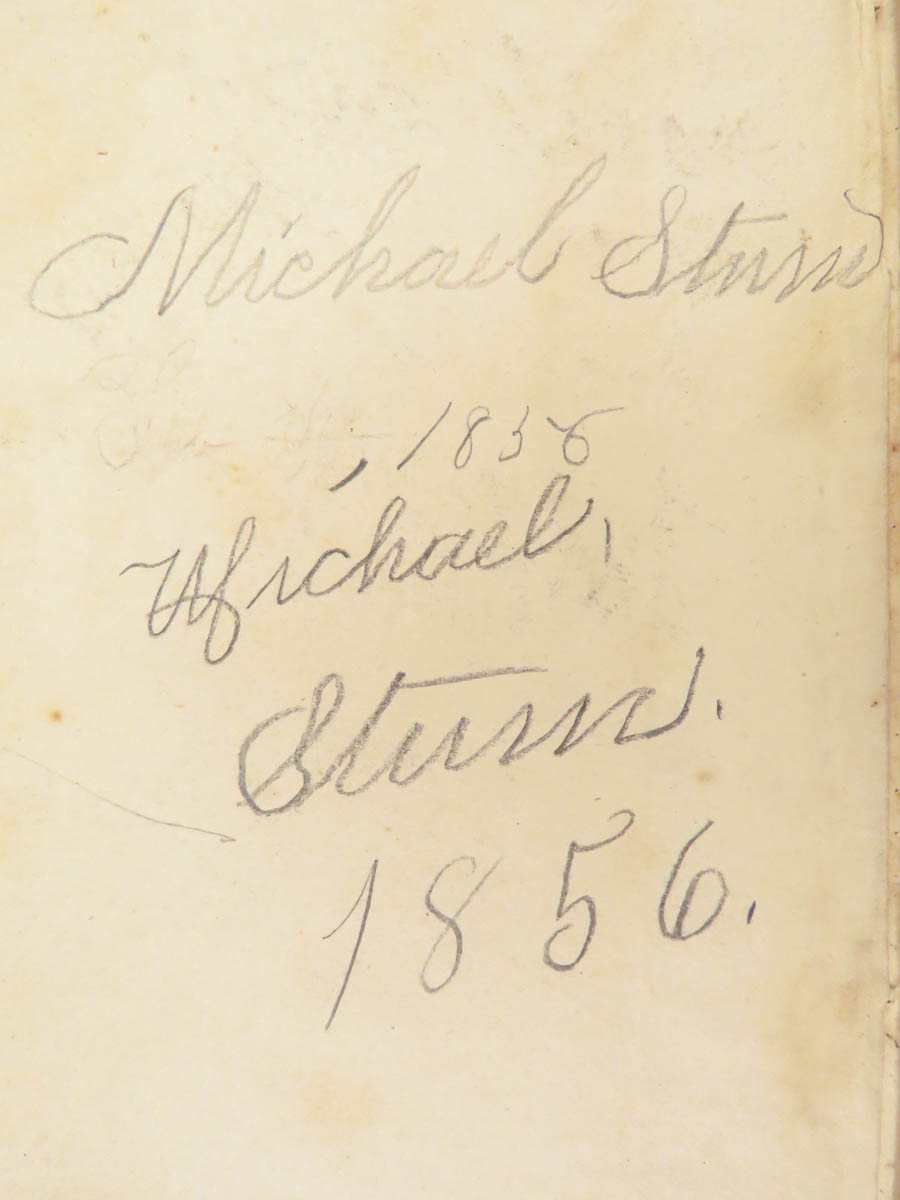 Michael Sturm
1856
Michael,
Sturm.
1856.